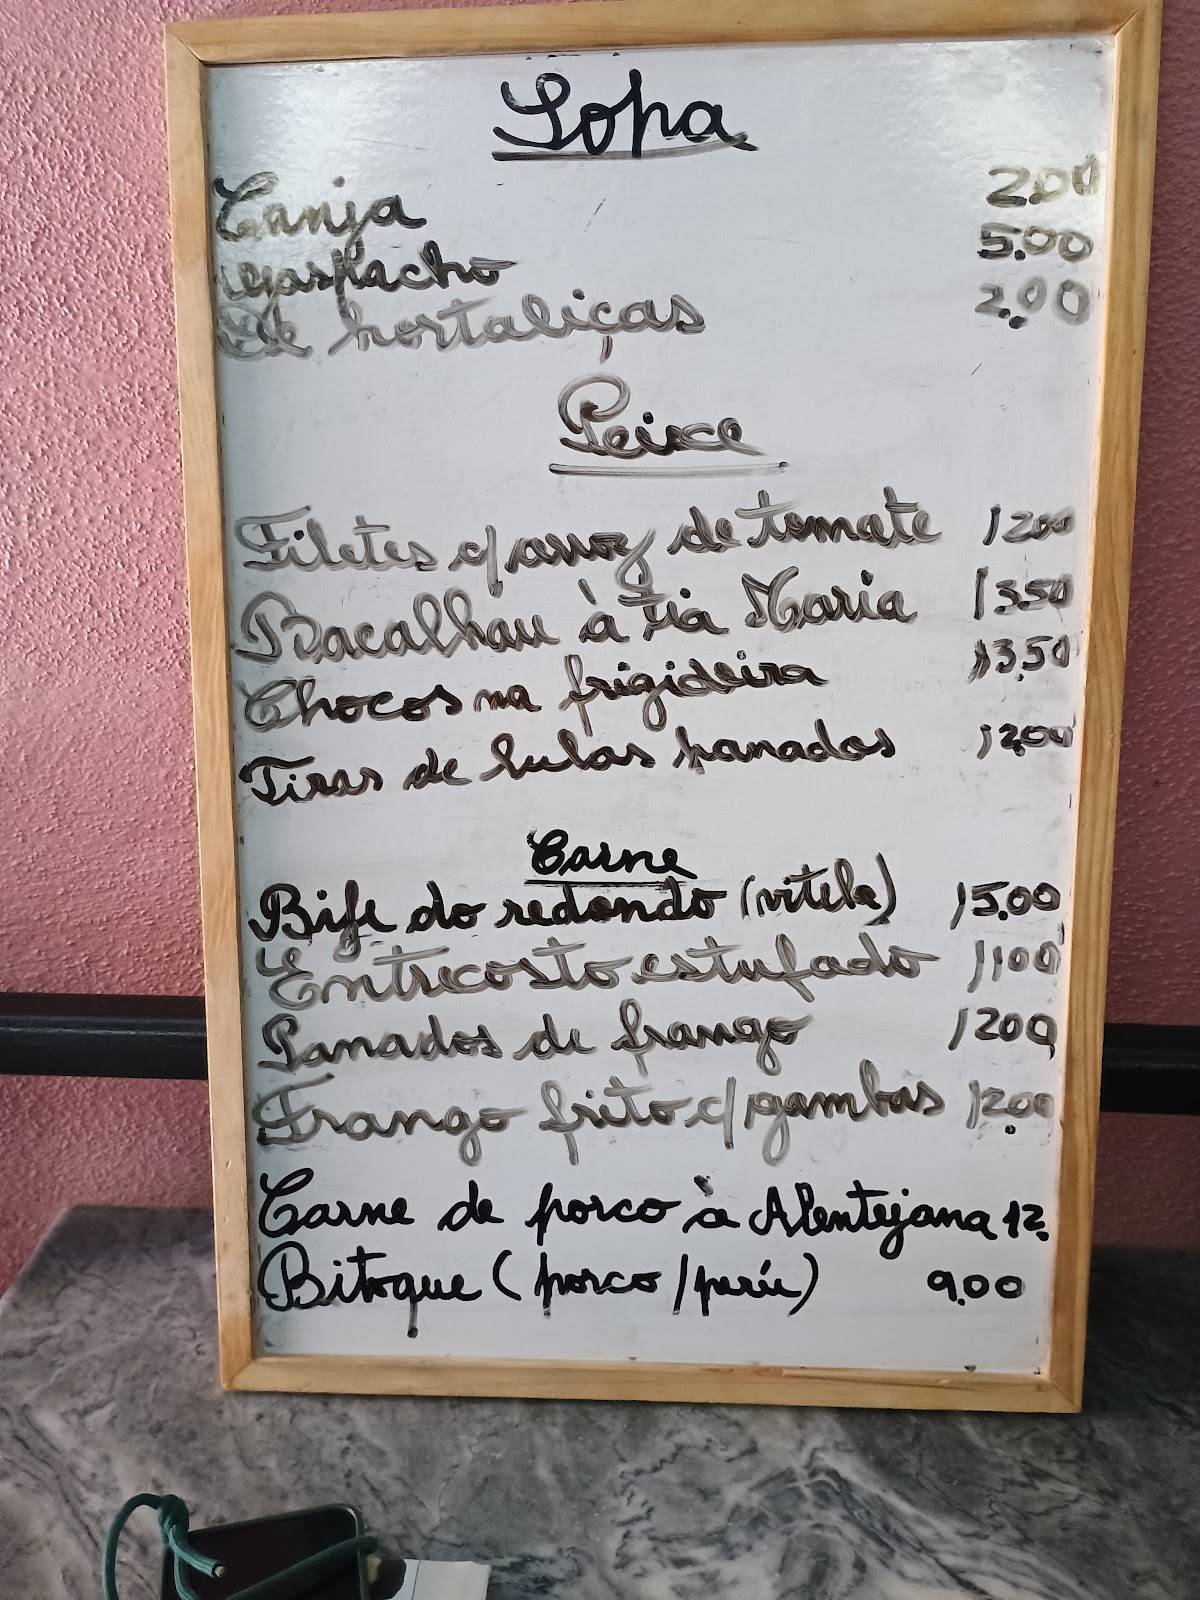 Sopa
Canja 2.00
Gaspacho 5.00
De hortaliças 2.00
Peixe
Filetes c/arroz de tomate 1200
Bacalhau à tia Maria 13.50
Chocos na frigideira 13.50
Tiras de lulas panadas 12.00
Carne
Bife do redondo (vitela) 15.00
Entrecosto estufado 1100
Panados de frango 1200
Frango frito c/gambas 12.00
Carne de porco à Alentejana 12.
Bitoque (porco/perú) 9.00